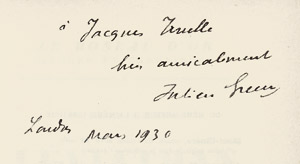 à Jacques Truelle
bien amicalement
Julien Green
Londres Mars 1930